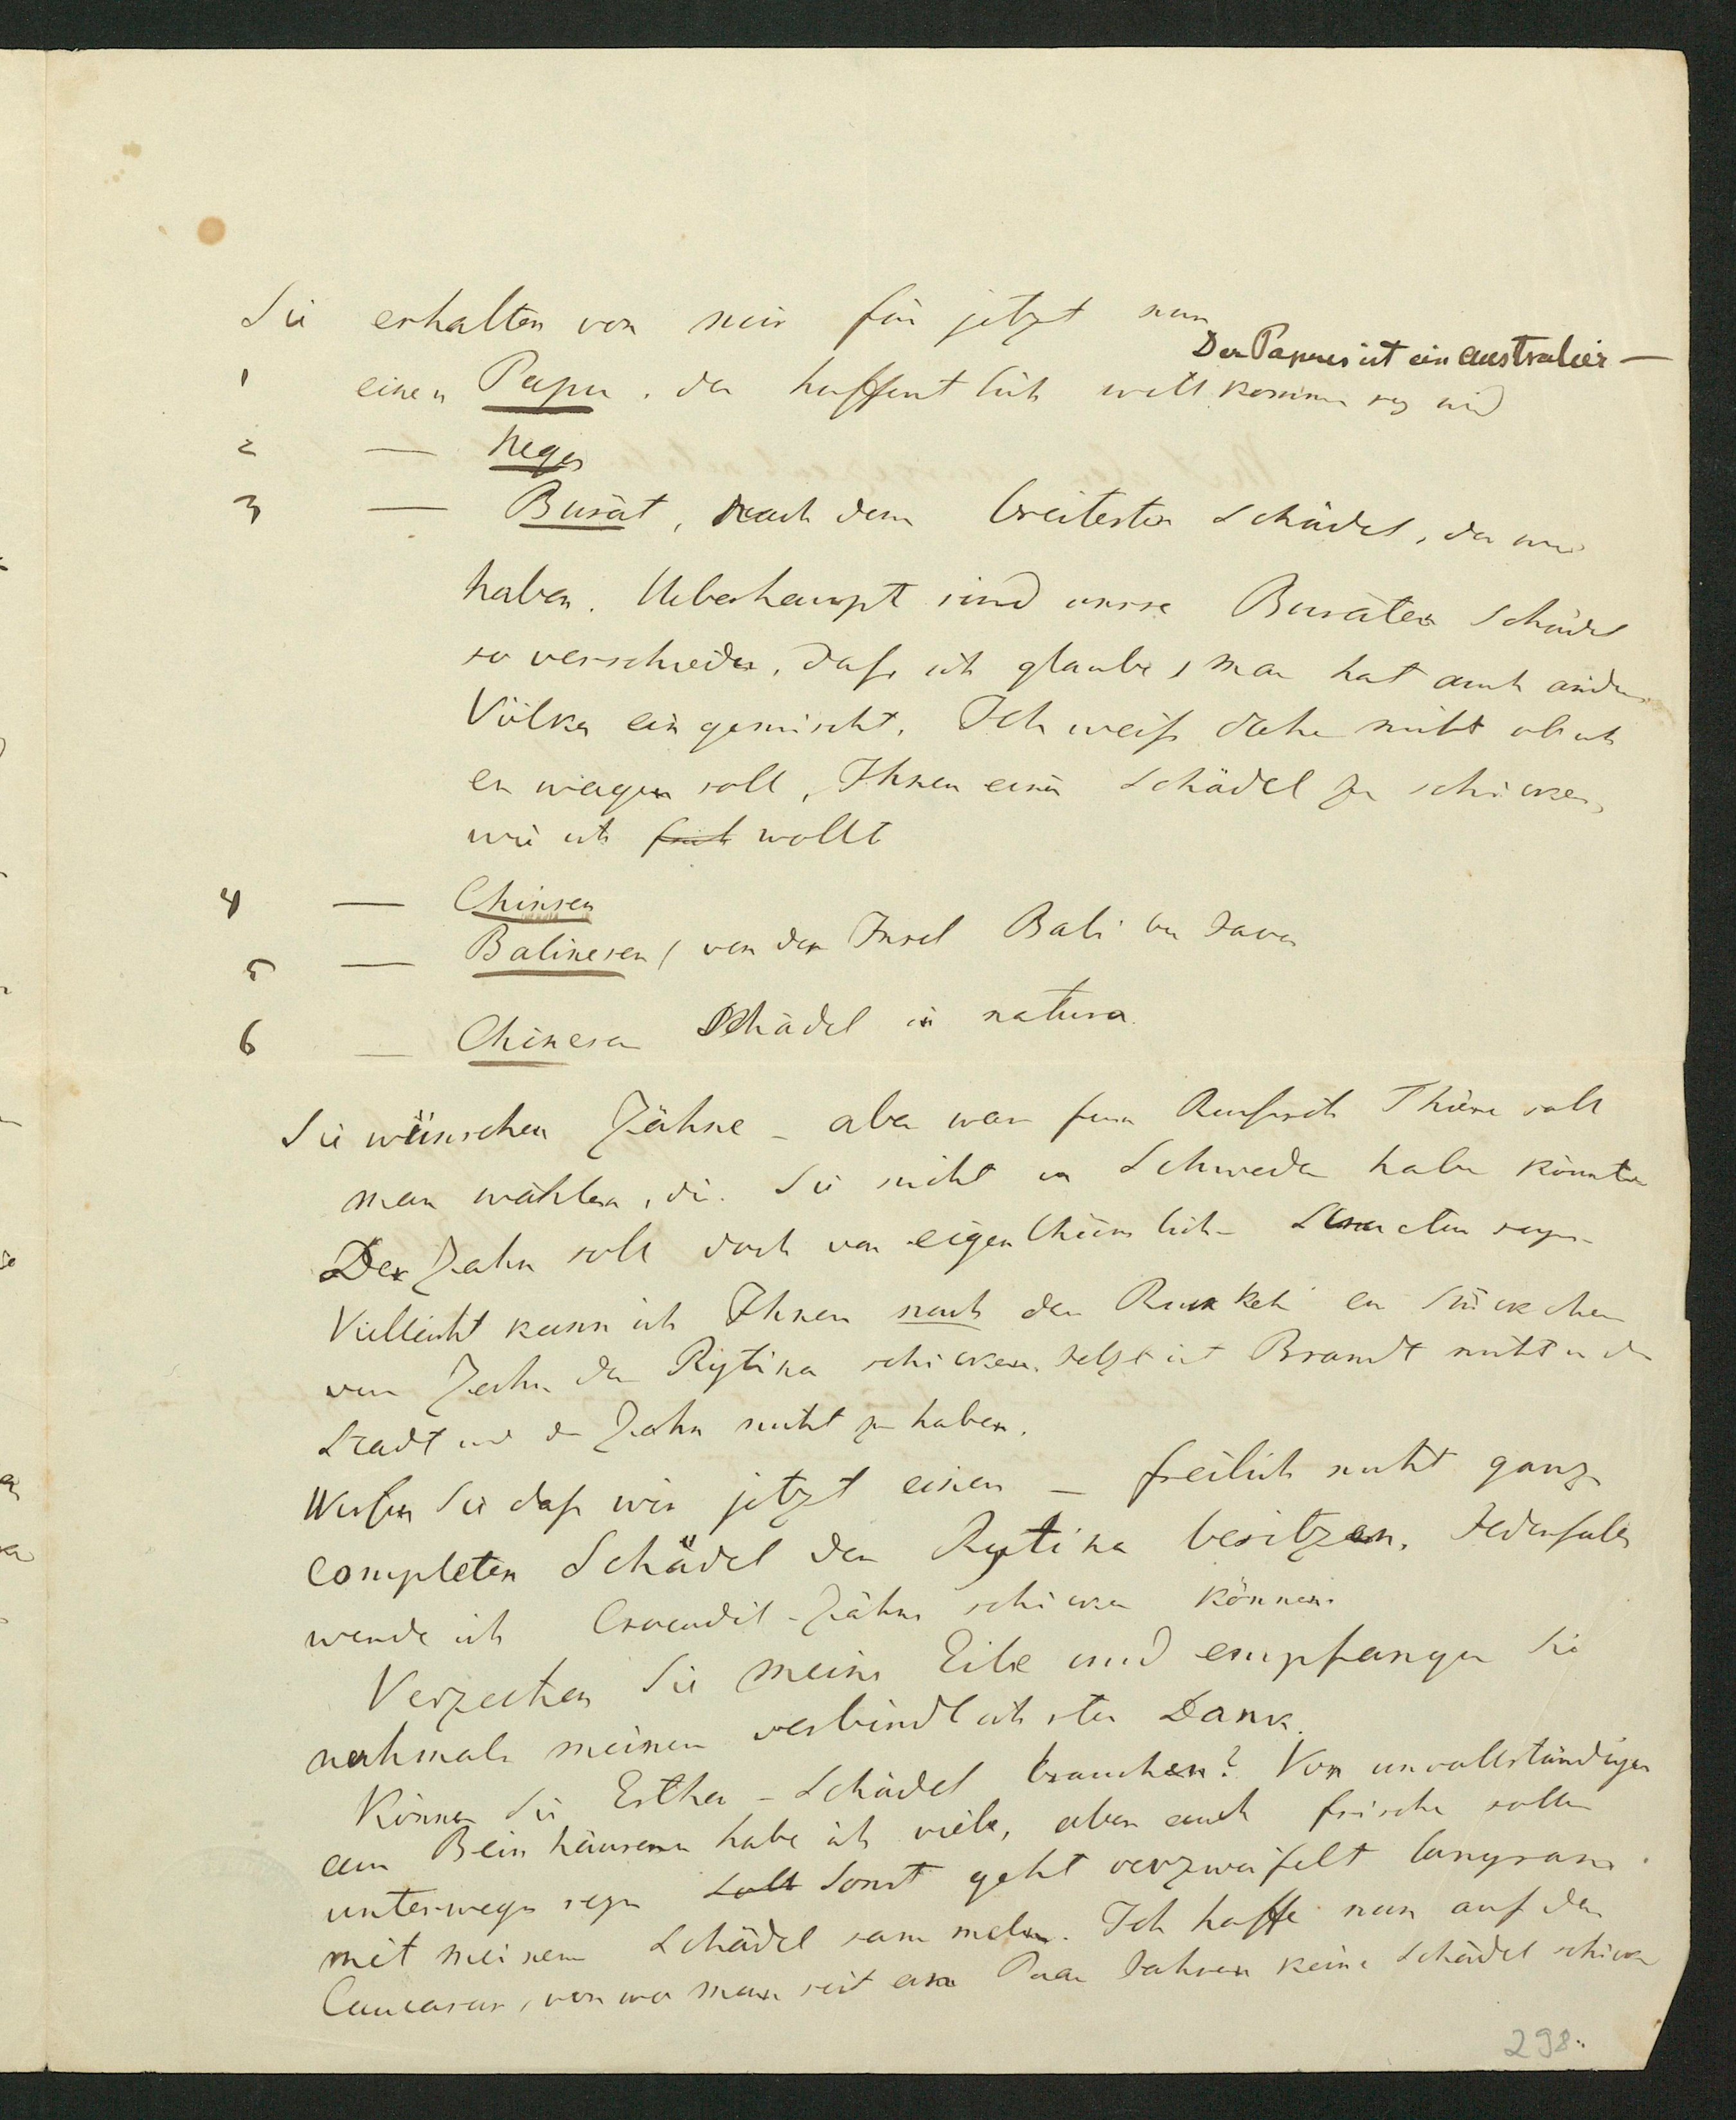 Sie erhalten von mir für jetzt nur
Der Papus ist ein Australier —
1 einen Papu, der hoffentlich willkommen seyn wird
2 — Neger
3 — Burät, nach dem breitesten Schädel, den wir
haben. Ueberhaupt sind unsre Buräten Schädel
so verschieden, dass ich glaube, man hat auch andere
Völker eingemischt. Ich weiss daher nicht ob ich
es wagen soll, Ihnen einen Schädel zu schicken,
wie ich wollte
4 — Chinesen
5 — Balinesen, von der Insel Bali bei Java
6 — Chinesen Schädel in natura
Sie wünschen Zähne – aber was für Thiere soll
man wählen, die Sie nicht in Schweden haben könnten
Der Zahn soll doch von eigenthümlicher Structur seyn.
Vielleicht kann ich Ihnen nach der Rückkehr ein Stückchen
vom Zahn der Rytina schicken. Jetzt ist Brandt nicht in der
Stadt und der Zahn nicht zu haben.
Wissen Sie dass wir jetzt einen – freilich nicht ganz
completen Schädel der Rytina besitzen. Jedenfalls
werde ich Crocodil-Zähne schicken können.
Verzeihen Sie meine Eile und empfangen Sie
nochmals meinen verbindlichsten Dank.
Können Sie Esthen-Schädel brauchen? Von unvollständigen
aus Beinhäusern habe ich viele, aber auch frische sollen
unterwegs seyn Sonst geht verzweifelt langsam
mit meinem Schädel sammeln. Ich hoffe nun auf den
Caucasus, von wo man seit ein Paar Jahren keine Schädel schickt
298.